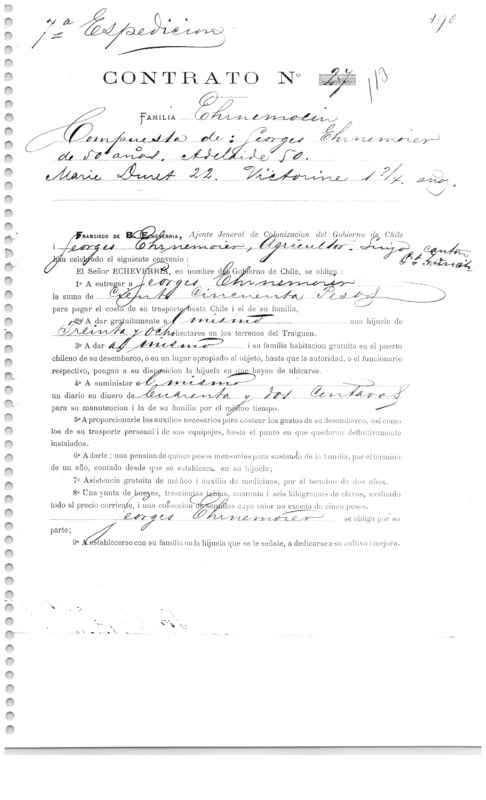 7ª Espedicion
190
CONTRATO Nº 27
119
FAMILIA Ehrnemoein
Compuesta de: Georges Ehrnemoier
de 50 años. Adelaide 50.
Marie Duret 22. Victorine 1 3/4 años.
FRANCISCO DE B. ECHEVERRIA, Ajente Jeneral de Colonizacion del Gobierno de Chile
i Georges Ehrnemoier, Agricultor. Suizo canton
han celebrado el siguiente convenio:
El Señor ECHEVERRIA, en nombre del Gobierno de Chile, se obliga:
1º A entregar a Georges Ehrnemoier
la suma de Ciento Cincuenta Pesos
para pagar el costo de su trasporte hasta Chile i el de su familia,
2º A dar gratuitamente a el mismo una hijuela de
Treinta y Ocho hectares en los terrenos del Traiguen.
3º A dar al mismo i su familia habitacion gratuita en el puerto
chileno de su desembarco, ó en un lugar apropiado al objeto, hasta que la autoridad, o el funcionario
respectivo, pongan a su disposicion la hijuela en que hayan de ubicarse.
4º A suministar al mismo
un diario en dinero de Cuarenta y dos Centavos
para su manutencion i la de su familia por el mismo tiempo.
5º A proporcionarle los auxilios necesarios para costear los gastos de su desembarco, asi como
los de su trasporte personal i de sus equipajes, hasta el punto en que quedaran definitivamente
instalados.
6º A darle: una pension de quince pesos mensuales para sustento de la familia, por el término
de un año, contado desde que se establezca en su hijuela;
7º Asistencia gratuita de médico i auxilio de medicinas, por el termino de dos años.
8º Una yunta de bueyes, trescientas tablas, cuarenta i seis kilógramos de clavos, evaluado
todo al precio corriente, i una coleccion de semillas cuyo valor no exceda de cinco pesos.
Georges Ehrnemoier se obliga por su
parte;
9º A establecerse con su familia en la hijuela que se le señale, a dedicarse a su cultivo i mejora.